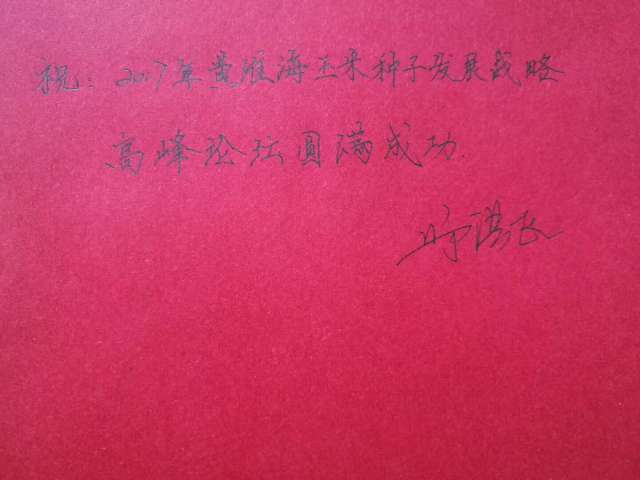 祝：2017年黄淮海玉米种子发展战略
高峰论坛圆满成功.